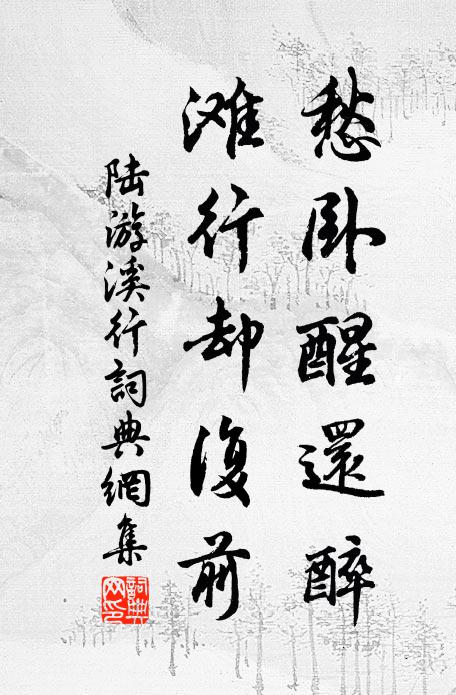 愁卧醒還醉
滩行却復前
陆游溪行詞典網集
詞典网印